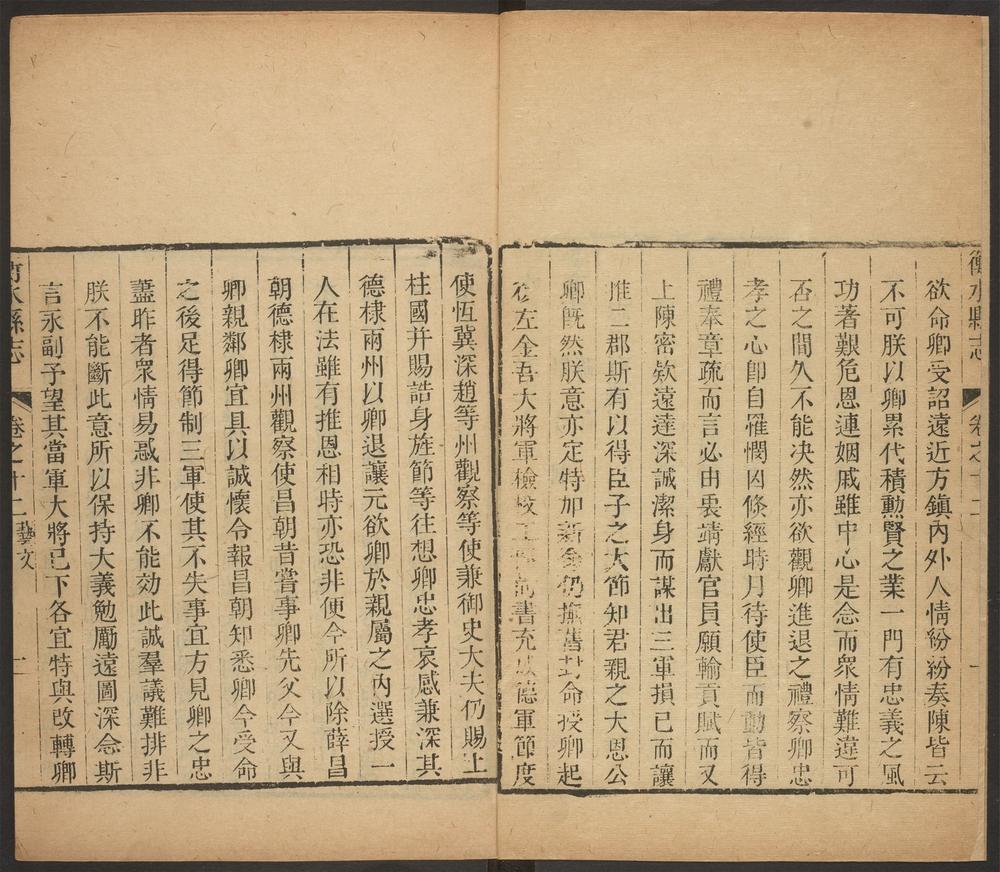 衡水縣志
卷之十二
一
欲命卿受詔遠近方鎮內外人情紛紛奏陳皆云
不可朕以卿累代積勲賢之業一門有忠義之風
功著艱危恩連姻戚雖中心是念而衆情難違可
否之間久不能决然亦欲觀卿進退之禮察卿忠
孝之心卽自罹憫凶條經時月待使臣而動皆得
禮奉章疏而言必由衷請獻官員願輸貢賦而又
上陳密欵遠達深誠潔身而謀出三軍損已而讓
惟二郡斯有以得臣子之大節知君親之大恩公
卿旣然朕意亦定特加新命仍撫舊封命授卿起
復左金吾大將軍檢校工部尚書充成德軍節度
使恆冀深趙等州觀察等使兼御史大夫仍賜上
柱國并賜誥身旌節等往想卿忠孝哀感兼深其
德棣兩州以卿退讓元欲卿於親屬之內選授一
人在法雖有推恩相時亦恐非便今所以除薛昌
朝德棣兩州觀察使昌朝昔嘗事卿先父今又與
卿親鄰卿宜具以誠懷令報昌朝知悉卿今受命
之後足得節制三軍使其不失事宜方見卿之忠
藎昨者衆情易惑非卿不能効此誠羣議難排非
朕不能斷此意所以保持大義勉勵遠圖深念斯
言永副予望其當軍大將已下各宜特與改轉卿
衡水縣志
卷之十二
藝文
十一